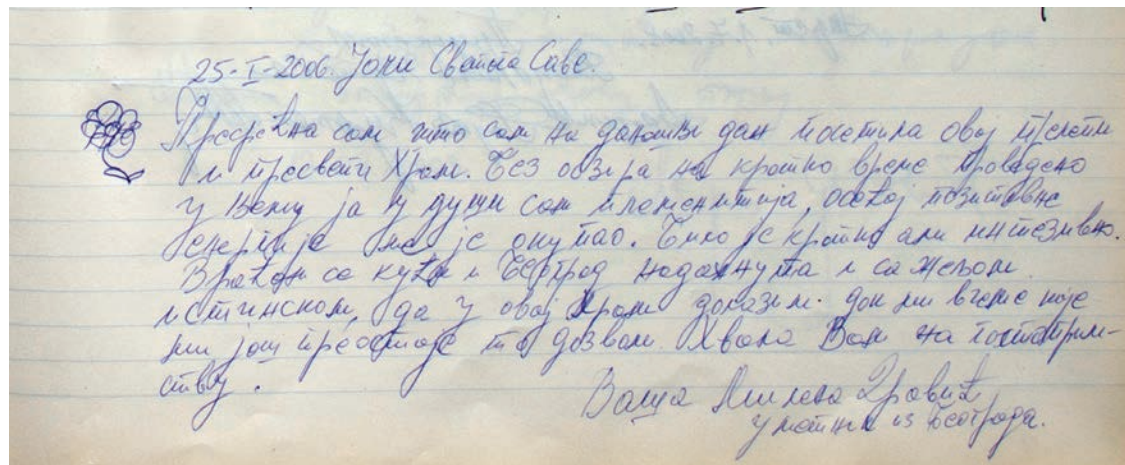 25-I-2006. Јоки Светога Саве.
Пресрећна сам што сам на данашњи дан посетила овај прелепи
и пресвети Храм. Без обзира на кратко време проведено
у њему ја у души сам племенитија, осећај позитивне
енергије ме је окупао. Било је кратко али интезивно.
Враћам се кући у Београд надахнута и са жељом
истинском, да у овај храм долазим. док ми време које
ми још преостаје то дозволи. Хвала Вам на гостоприм-
ству.
Ваша Милена
уметник из Београда.